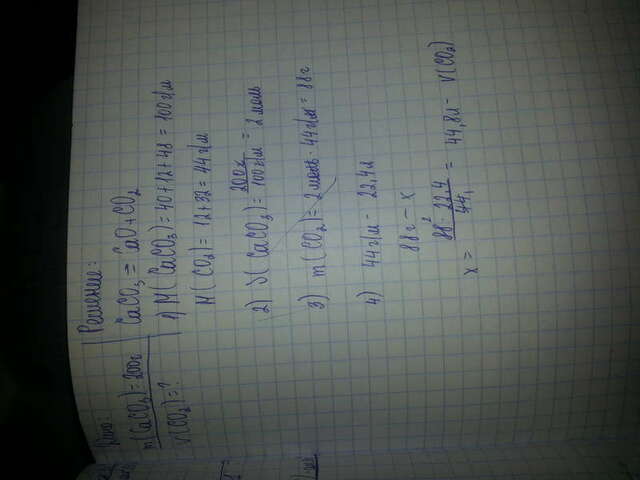 Дано:
m(CaCO₃)=200г
V(CO₂)=?
Решение:
CaCO₃ = CaO + CO₂
1) M(CaCO₃) = 40+12+48 = 100 г/м
M(CO₂) = 12+32 = 44 г/м
2) ν(CaCO₃) = 200г / 100 г/м = 2 моль
3) m(CO₂) = 2 моль · 44 г/м = 88 г
4) 44 г/м – 22,4 л
88 г – x
x = 88² · 22,4 / 44₁ = 44,8 л – V(CO₂)